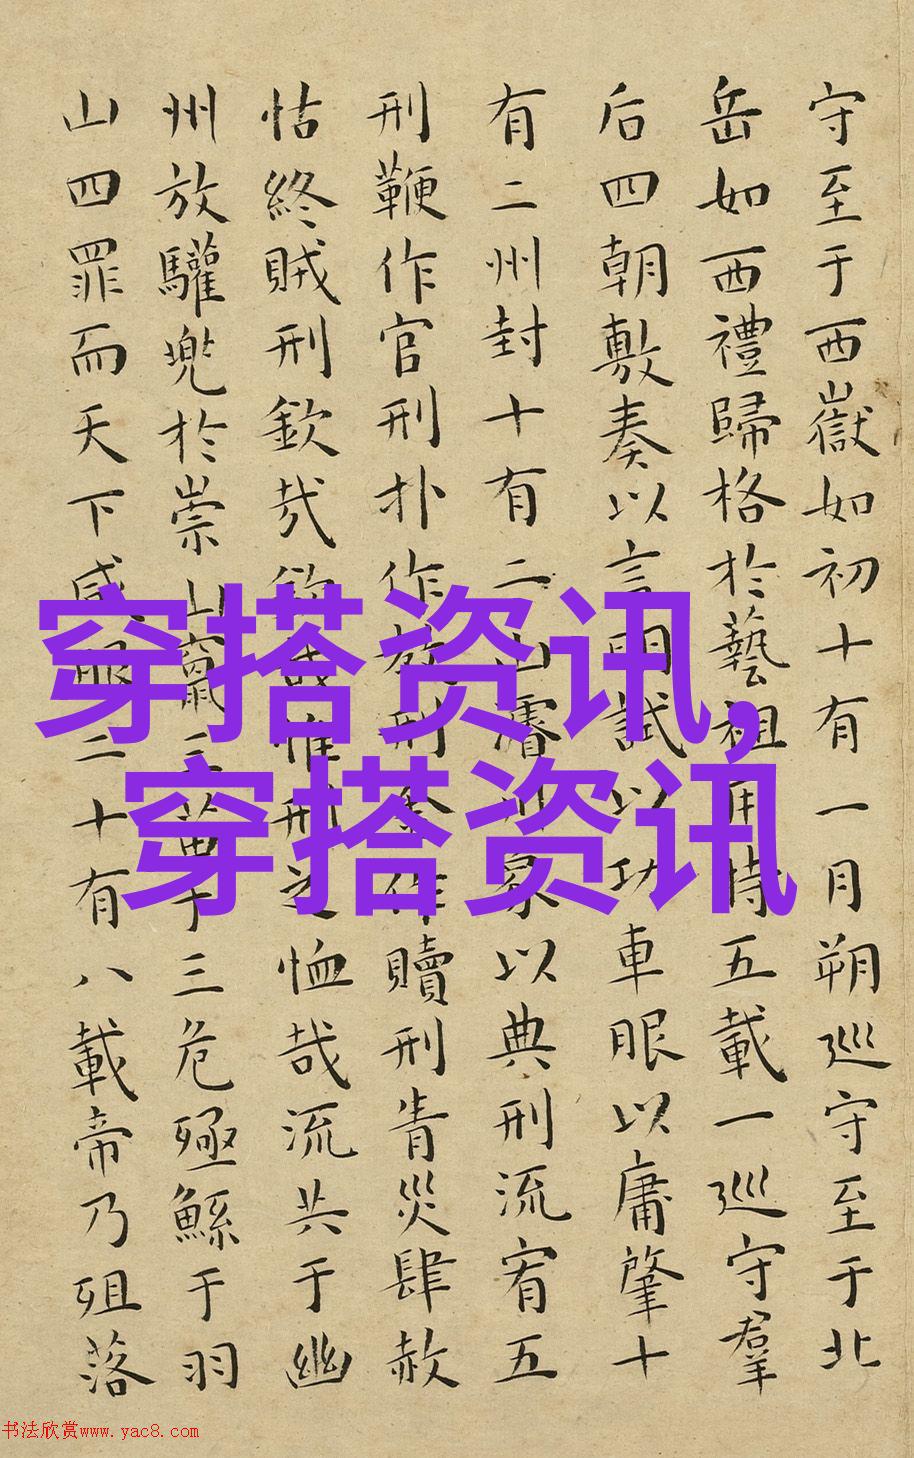 守至于西嶽如初十有一月朔巡守至于北
岳如西禮歸格於藝祖用特五載一巡守羣
后四朝敷奏以言明試以功車服以庸肇十
有二州封十有二山濬川象以典刑流宥五
刑鞭作官刑扑作教刑金作贖刑眚災肆赦
怙終賊刑欽哉欽哉惟刑之恤哉流共于幽
州放驩兜於崇山竄三苗于三危殛鯀于羽
山四罪而天下咸服二十有八載帝乃殂落
穿搭资讯,
穿搭资讯
书法欣赏www.yac8.com